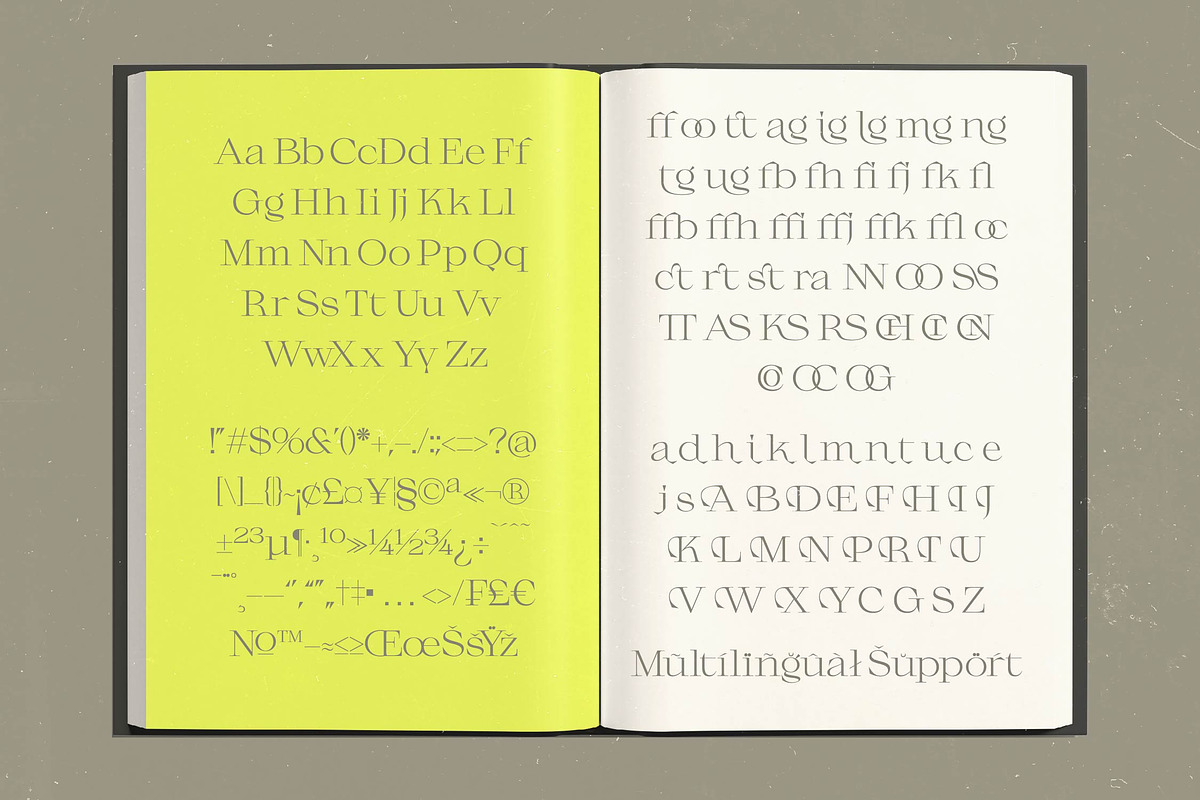 Aa Bb Cc Dd Ee Ff
Gg Hh Ii Jj Kk Ll
Mm Nn Oo Pp Qq
Rr Ss Tt Uu Vv
Ww Xx Yy Zz
!"#$%&'()*+,-./:;<=>?@
[\]_{|}~¡¢£¤¥¦§©ª«¬®
±²³µ¶·¸¹º»¼½¾¿÷ˆˇ˘˜
¯¨˙˚¸–—‘’‚“”„†‡•…<>/₣₤€
№™−≈≤≥ŒœŠšŸž
ff oo tt ag ig lg mg ng
tg ug fb fh fi fj fk fl
ffb ffh ffi ffj ffk ffl oc
ct rt st ra NN OO SS
TT AS KS RS CH CI CN
CO OC OG
a d h i k l m n t u c e
j s A B D E F H I J
K L M N P R T U
V W X Y C G S Z
Mũltílïñğûàł Šŭppörŕt